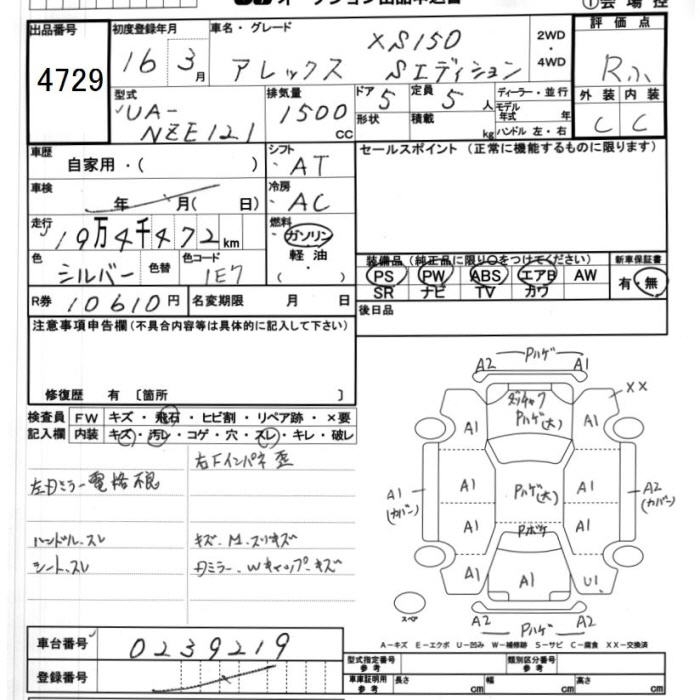 オークション出品申込書
①会場控
出品番号
4729
初度登録年月
16 3月
車名・グレード
XS150
アレックス Sエディション
2WD
・
4WD
評価点
Rふ
外装 内装
C C
型式
UA-
NZE121
排気量
1500
CC
ドア 5
定員 5人
形状
積載 kg
ディーラー・並行
モデル年式 年
ハンドル 左・右
車歴
自家用・( )
シフト
AT
セールスポイント(正常に機能するものに限ります)
車検
年 月( 日)
冷房
AC
走行
19万4千472km
燃料
ガソリン
軽油
・
色
シルバー
色替
色コード
1E7
装備品(純正品に限り○をつけてください)
PS PW ABS エアB AW
SR ナビ TV カワ
新車保証書
有・無
R券 10610円
名変期限 月 日
後日品
注意事項申告欄(不具合内容等は具体的に記入して下さい)
修復歴 有〔箇所 〕
検査員記入欄
FW キズ・飛石・ヒビ割・リペア跡・×要
内装 キズ・汚レ・コゲ・穴・スレ・キレ・破レ
右下インパネ歪
左Dミラー電格不良
ハンドル.スレ
キズ.M.スリキズ
シート.スレ
Dミラー.Wキャップ.キズ
A2 Pハゲ A1
XX
ダッチャク
Pハゲ(大)
A1 A1
A1
(カバー)
A1
Pハゲ(大)
A1
A2
(カバー)
A1
Pボケ
A1
A1 A1 U1
スペア
A2 Pハゲ A2
A−キズ E−エクボ U−凹み W−補修跡 S−サビ C−腐食 XX−交換済
車台番号 0239219
登録番号
型式指定番号 参考
類別区分番号 参考
車庫証明用 参考
長さ cm
幅 cm
高さ cm